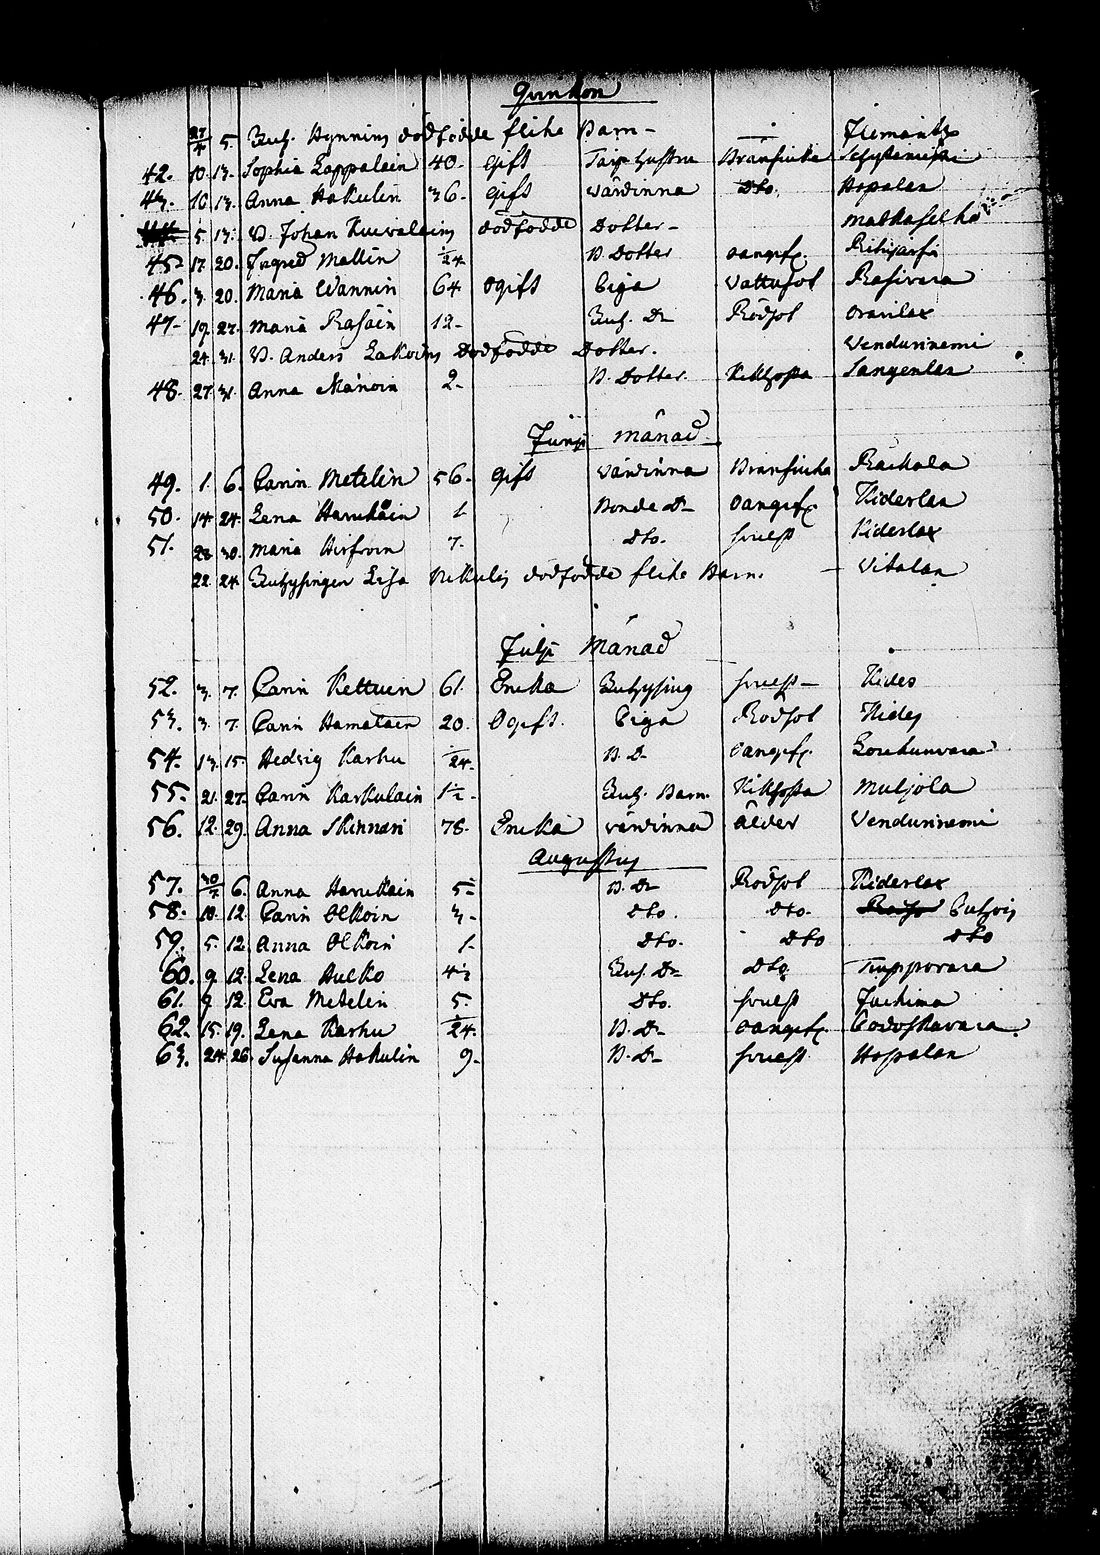 Qvinkön
27/4 5. Inh. Hynnins dödfödde flike Barn -
42. 10. 13. Sophia Lappalain 40. gift Bränsiuka
43. 10. 13. Anna Hakulin 36. gift värdinna dto. Hopalax
5. 13. B. Johan Kuivalains dödfödde Dotter - Matkaselkä
45. 17. 20. Ingred Mallin /24 B. Dotter oangifv. Rihijärfi
46. 3. 20. Maria Wannin 64 ogift Piga Vattusot Rasivara
47. 19. 27. Maria Rasain 12. Inh. Dr Rödsot Oravilax
24. 31. B. Anders Dödfödde Dotter. Vendurinemi
48. 27. 31. Anna Mänoin 2. B. Dotter. Kikhosta Sangenlax
Junji månad
49. 1. 6. Carin Metelin 56. gift värdinna Bränsiuka Rackala
50. 14. 24. Lena Harukain 1. Bonde Dr oangifv. Kiderlax
51. 23. 30. Maria Hirfvoin 7. dto. Kiderlax
22. 24. Inhysingen Lisa Nikulis dödfödde flike Barn. - Vitalax
Julji Månad
52. 3. 7. Carin Kettuin 61. Enka Inhysing Kides
53. 3. 7. Carin Hamalain 20. Ogift. Piga Rödsot Kides
54. 13. 15. Hedvig Karhu /24. B. D. oangifv.
55. 21. 27. Carin Karkulain 1½. Inh. Barn. Kikhosta Muljola
56. 12. 29. Anna Skinnari 78. Enka värdinna ålder Vendurinemi
Augustus
57. 30/7 6. Anna Harukain 5. B. Dr Rödsot Kiderlax
58. 10. 12. Carin Olkoin 3. dto. dto. Puhois
59. 5. 12. Anna Olkoin 1. dto. dto dto
60. 9. 12. Lena Hucko 4½ Inh. Dr dto Tiupporara
61. 9. 12. Eva Metelin 5. dto. Juckima
62. 15. 19. Lena Karhu /24. B. Dr oangifv.
63. 24. 26. Susanna Hakulin 9. B. Dr Hopalax